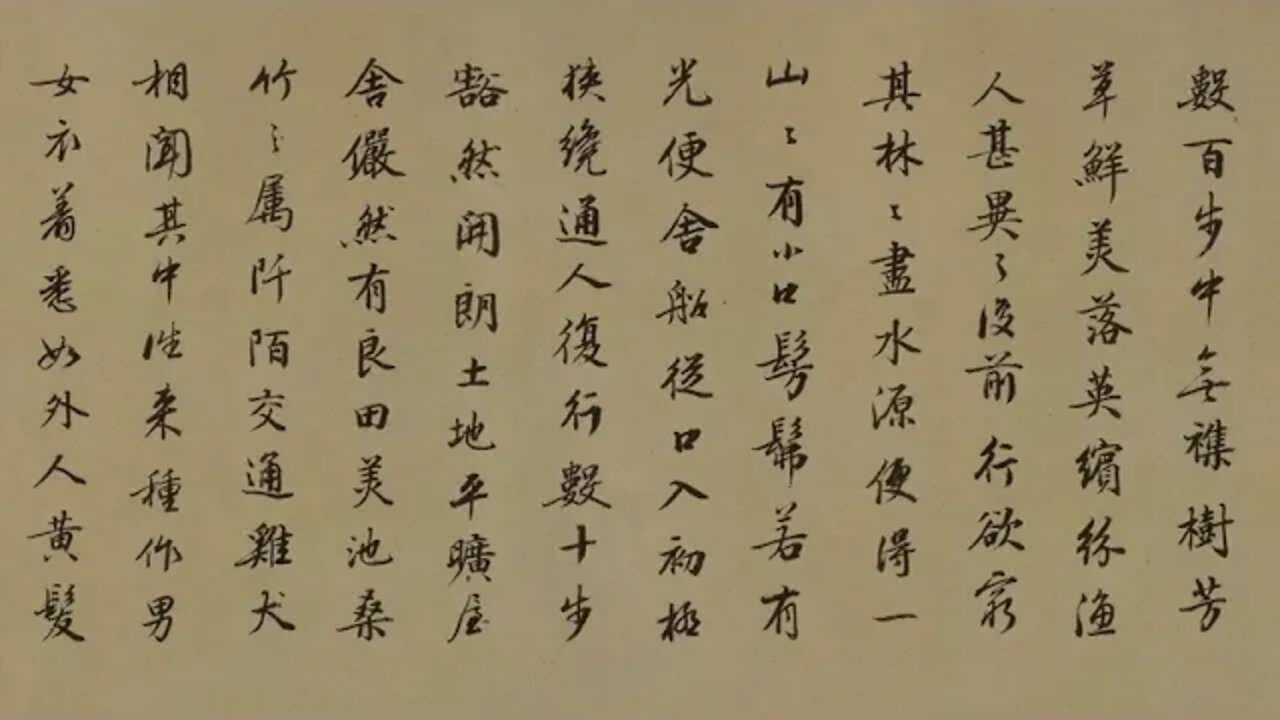 數百步中無襍樹芳
草鮮美落英繽紛漁
人甚異々復前行欲窮
其林〻盡水源便得一
山〻有小口髣髴若有
光便舍船從口入初極
狹纔通人復行數十步
豁然開朗土地平曠屋
舍儼然有良田美池桑
竹之屬阡陌交通雞犬
相聞其中往来種作男
女衣着悉如外人黃髮